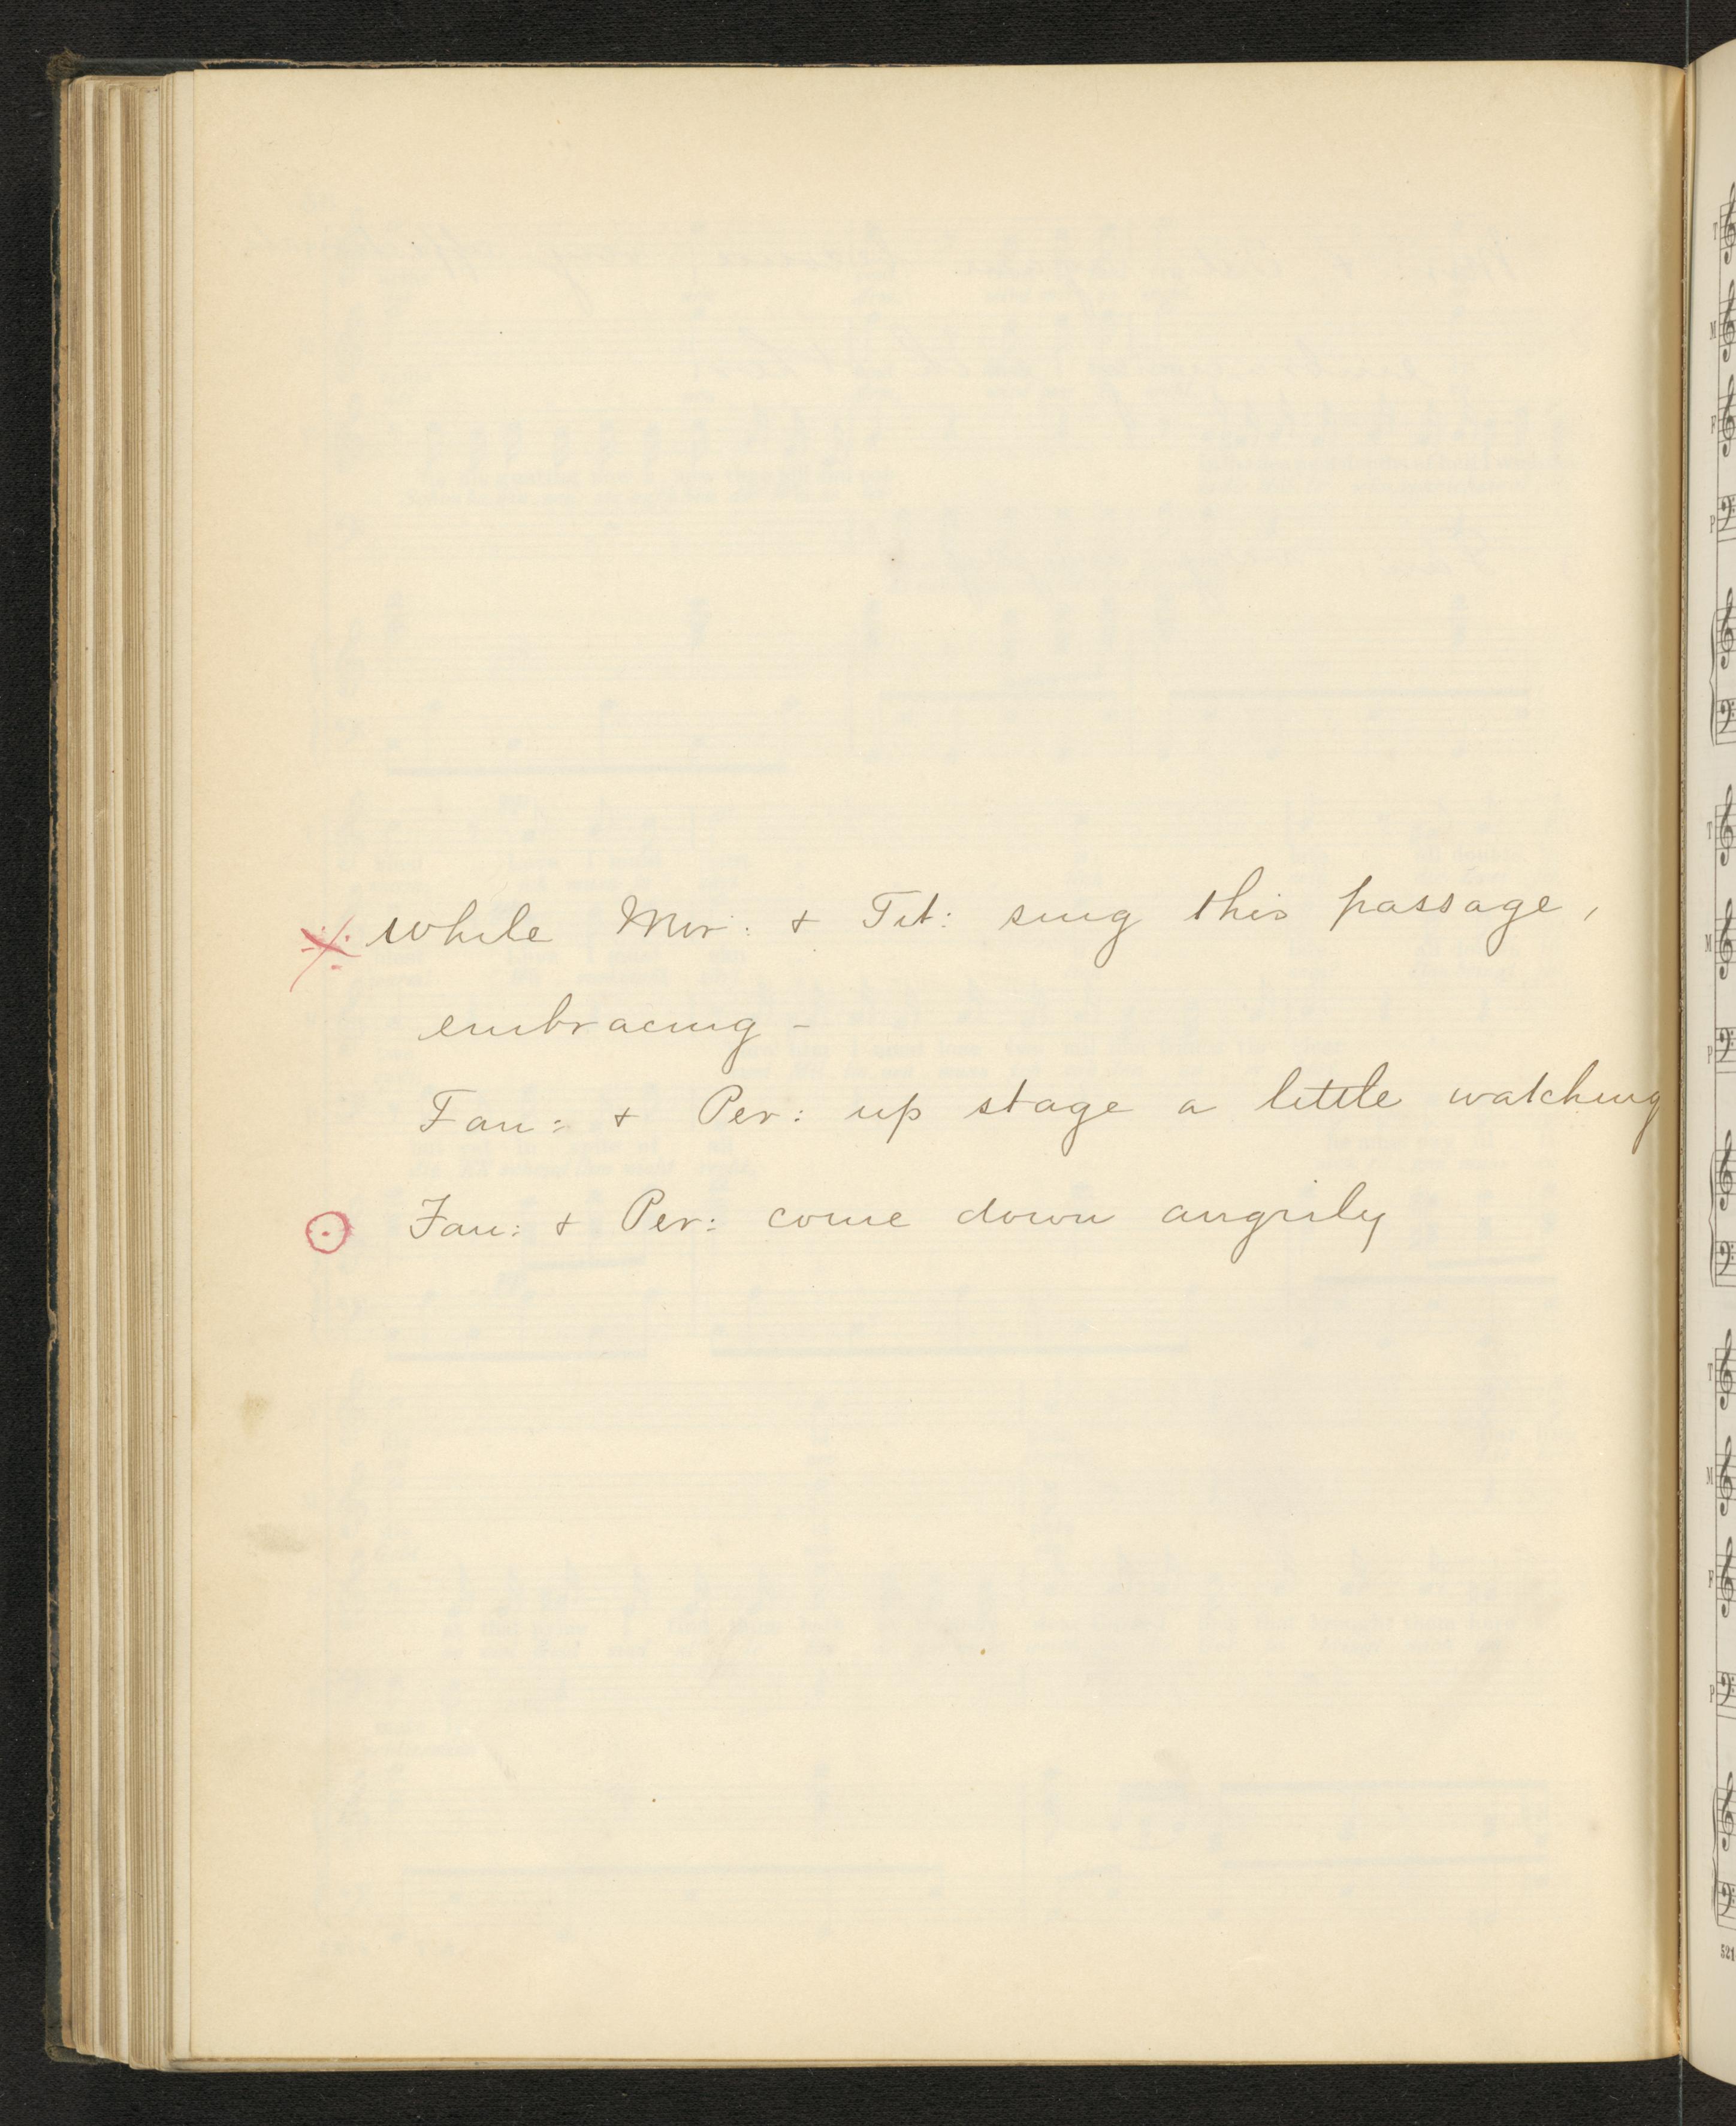 ※ while Mir: & Tit: sing this passage,
embracing -
Fan: & Per: up stage a little watching
⊙ Fan: & Per: come down angrily
T
M
F
P
T
M
P
T
M
F
P
521